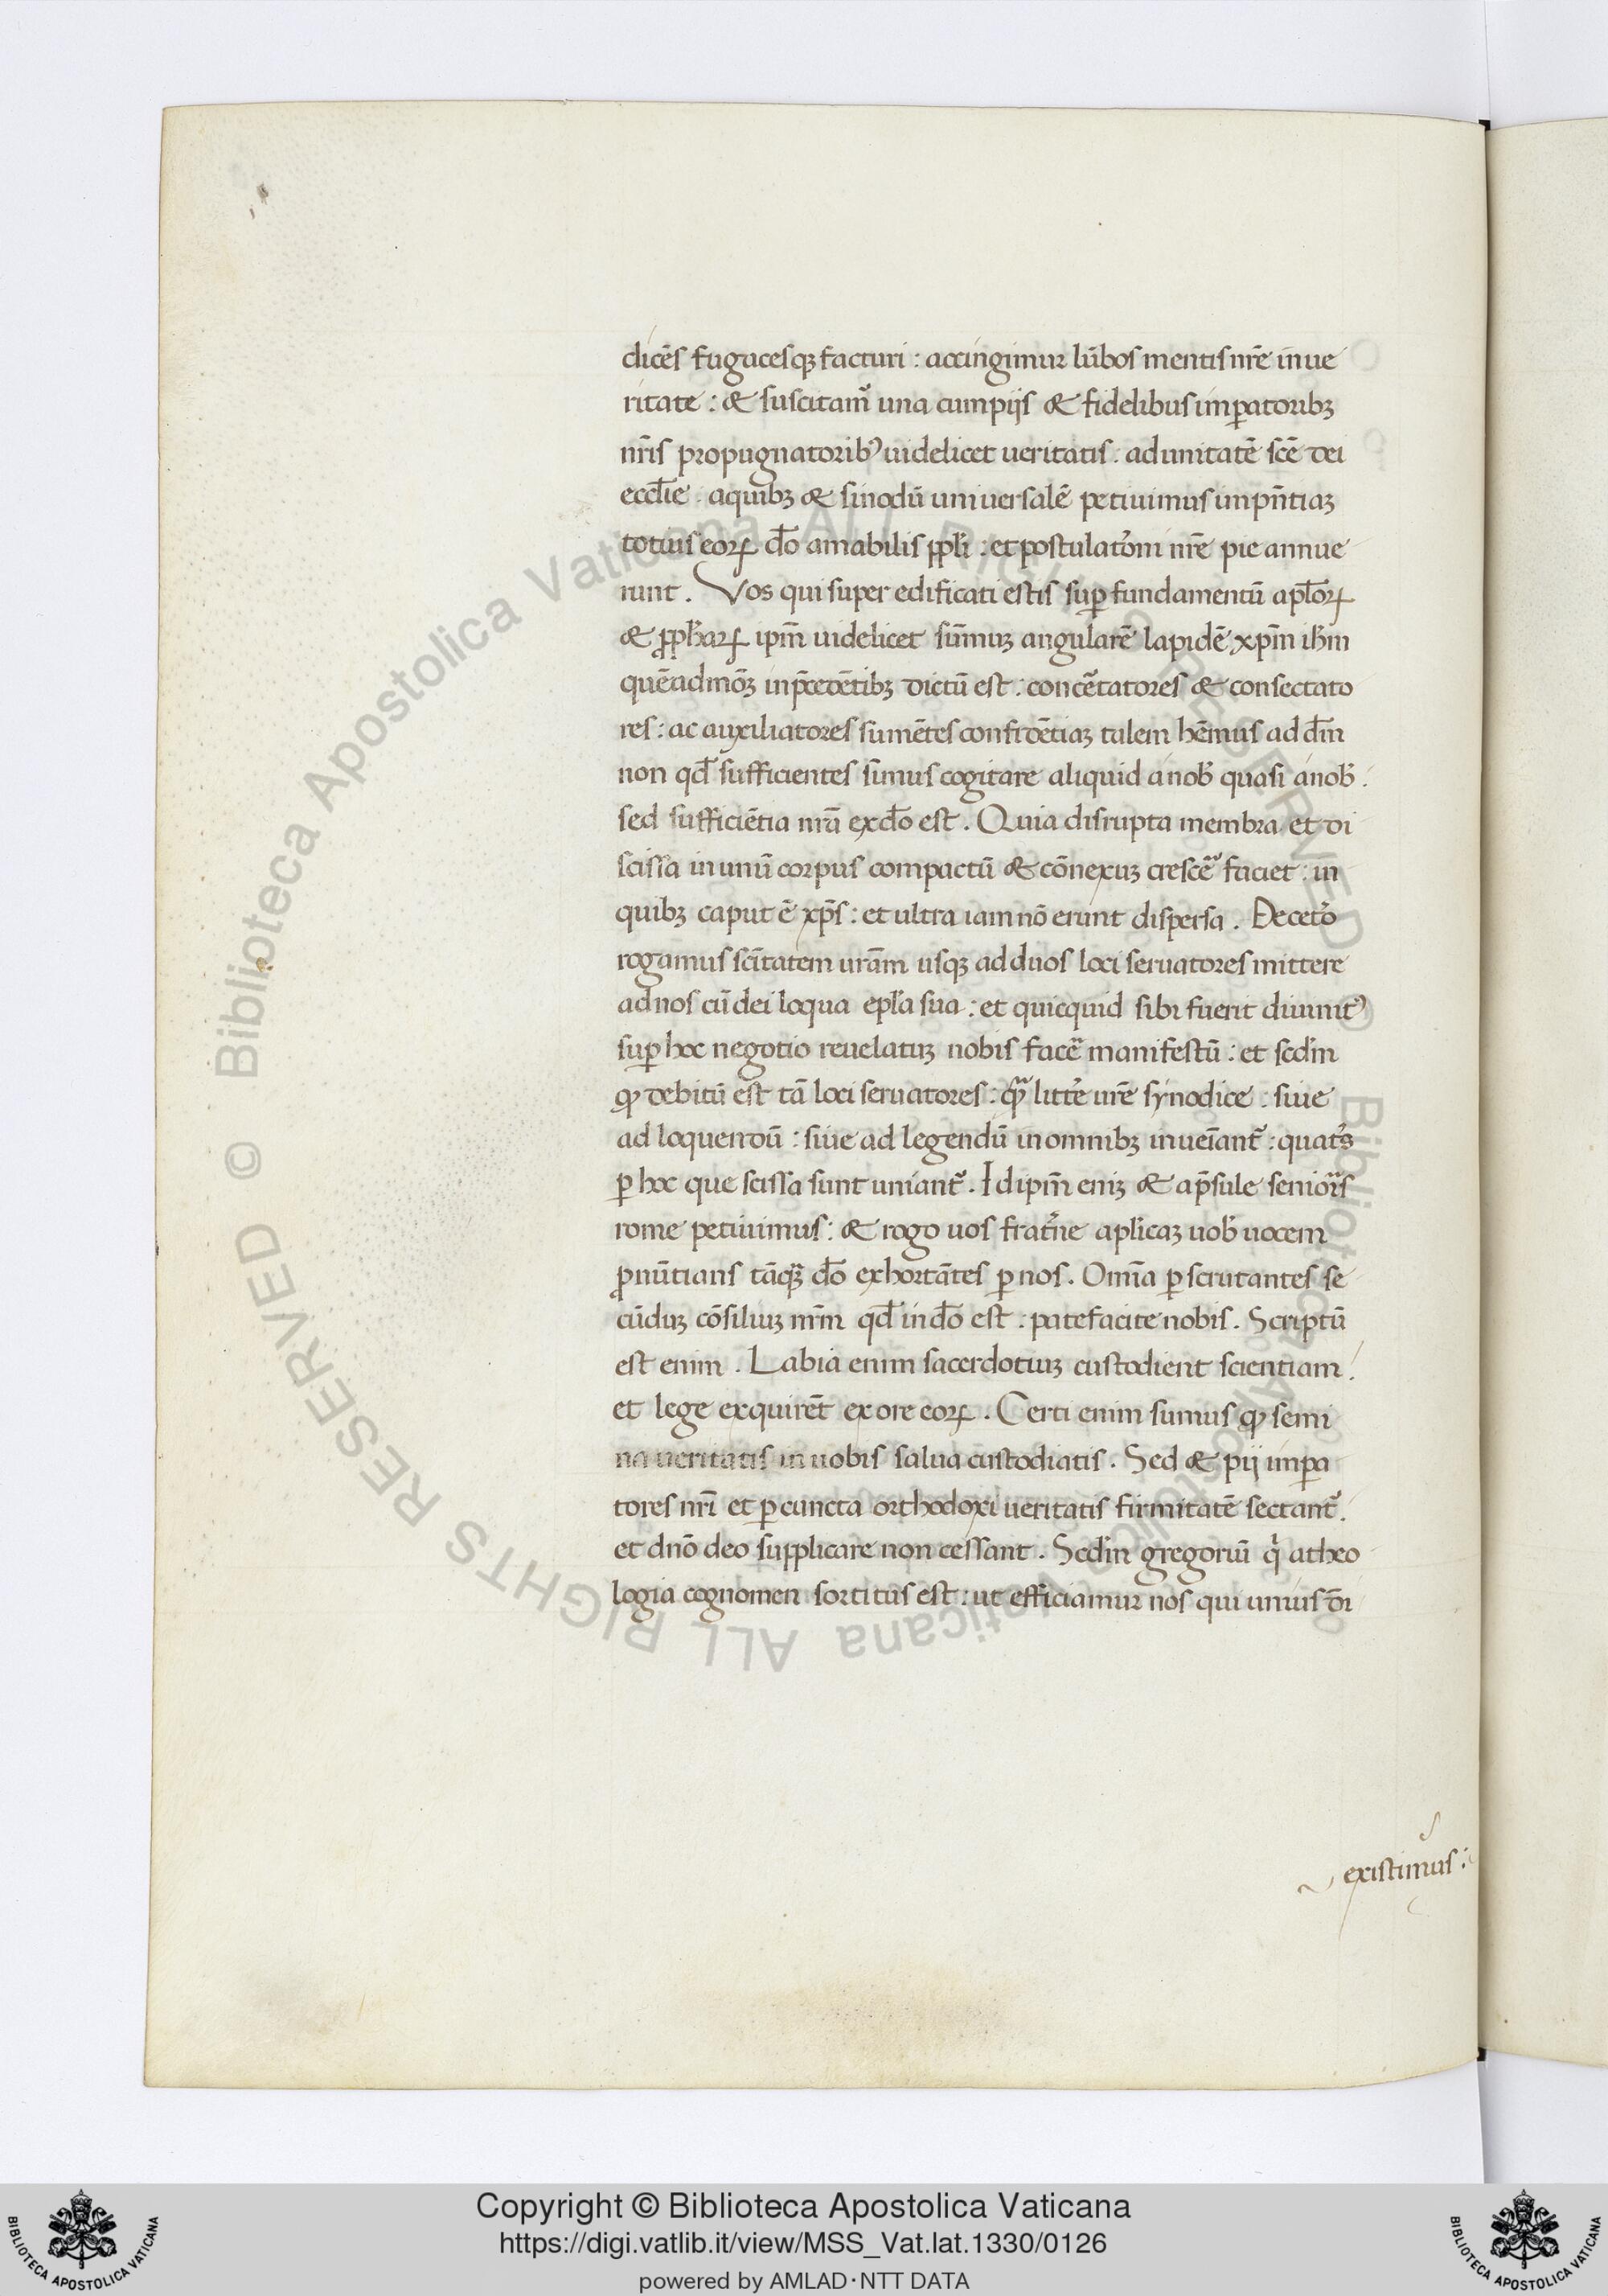 dicēs fugacesqꝫ facturi : accingimur lūbos mentis nr̄e in ue
ritate : & suscitam᷑ una cum pijs & fidelibus imꝑatoribꝫ
nr̄is propugnatoribꝰ uidelicet ueritatis : ad unitatē scē dei
eccl̄ie . a quibꝫ & sinodū uniuersalē petiuimus in pn̄tiaꝫ
totius eoꝝ do̅ amabilis ppl̄i : et postulato̅ni nr̄e pie annue
runt . Vos qui super edificati estis suꝑ fundamentū apl̄oꝝ
& ꝓph̄aꝝ ip̄m uidelicet sūmuꝫ angularē lapidē xp̄m ih̄m
quēadmōꝫ in p̄cedētibꝫ dictū est : concētatores & consectato
res : ac auxiliatores sumētes confidētiaꝫ talem hēmus ad dm̄
non qd̄ sufficientes simus cogitare aliquid a nob̄ quasi a nob̄ :
sed sufficiētia nr̄a ex do̅ est . Quia disrupta membra et di
scissa in unū corpus compactū & cōnexuꝫ crescē faciet : in
quibꝫ caput ē xp̄s : et ultra iam nō erunt dispersa . De cet̄o
rogamus scītatem ur̄am usqꝫ ad duos loci seruatores mittere
ad nos cū dei loqua epl̄a sua : et quicquid sibi fuerit diuinitꝰ
suꝑ hoc negotio reuelatuꝫ nobis facē manifestū : et scd̄m
ꝙ debitū est tā loci seruatores : qᷓ litt̄e ur̄e synodice : siue
ad loquendū : siue ad legendū in omnibꝫ inueīant᷑ : quat̄s
ꝑ hoc que scissa sunt uniant᷑ . Id ipm̄ eniꝫ & a p̄sule seniōis
rome petiuimus : & rogo uos frat̄ne apl̄icaꝫ uob̄ uocem
ꝓnūtians tāqꝫ do̅ exhortātes ꝑ nos . Omīa ꝑscrutantes se
cūduꝫ cōsiliuꝫ nr̄m qd̄ in do̅ est : patefacite nobis . Scriptū
est enim . Labia enim sacerdotuꝫ custodient scientiam :
et lege exquirēt ex ore eoꝝ . Certi enim sumus ꝙ semi
na ueritatis in uobis salua custodiatis . Sed & pij imꝑa
tores nr̄i et ꝑ cuncta orthodoxi ueritatis firmitatē sectant᷑ :
et dn̄o deo supplicare non cessant . Scd̄m gregoriū q̇ a theo
logia cognomen sortitus est : ut efficiamur nos qui unius di̅
existimus :
Copyright © Biblioteca Apostolica Vaticana
https://digi.vatlib.it/view/MSS_Vat.lat.1330/0126
powered by AMLAD·NTT DATA
© Biblioteca Apostolica Vaticana ALL RIGHTS RESERVED
© Biblioteca Apostolica Vaticana ALL RIGHTS RESERVED
BIBLIOTECA APOSTOLICA VATICANA
BIBLIOTECA APOSTOLICA VATICANA